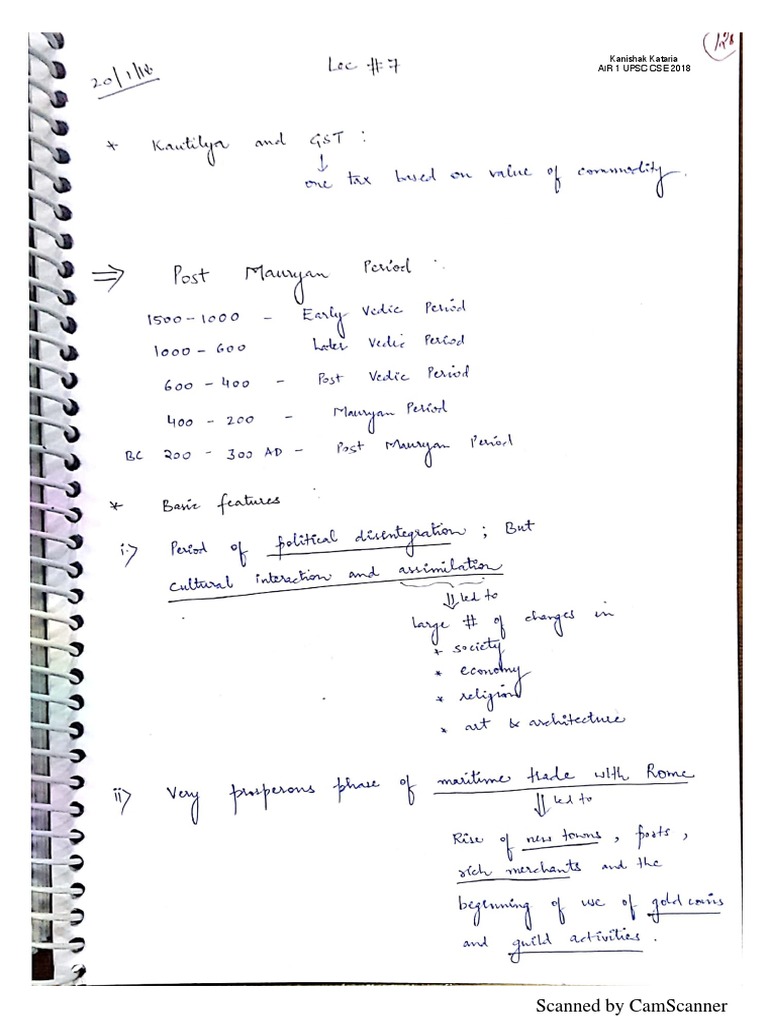 20/1/18
Lec #7
Kanishak Kataria
AIR 1 UPSC CSE 2018
* Kautilya and GST :
↓
one tax based on value of commodity.
⇒ Post Mauryan Period :
1500-1000 - Early Vedic Period
1000-600 Later Vedic Period
600-400 - Post Vedic Period
400-200 - Mauryan Period
BC 200-300 AD - Post Mauryan Period
* Basic features :
i.) Period of political disentegration ; But
cultural interaction and assimilation
⇓ led to
Large # of changes in
* society
* economy
* religion
* art & architecture
ii) Very prosperous phase of maritime trade with Rome
⇓ led to
Rise of new towns, ports,
rich merchants and the
beginning of use of gold coins
and guild activities.
Scanned by CamScanner